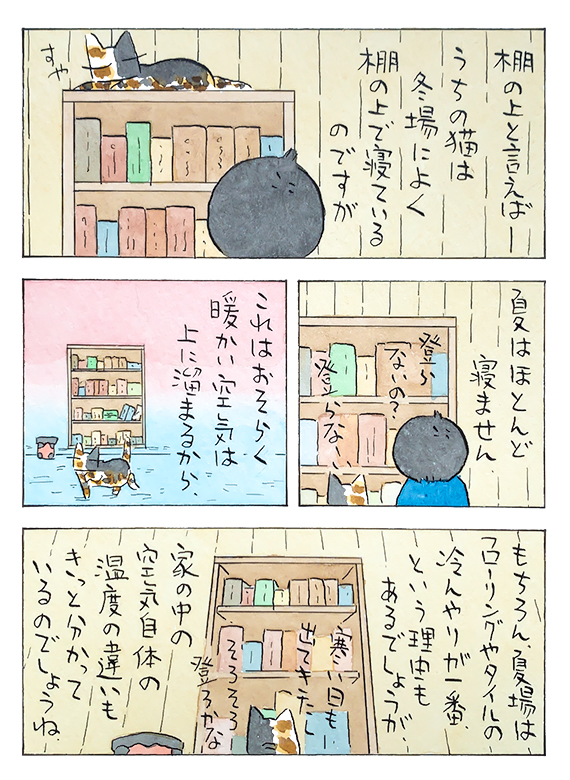 棚の上と言えばー
うちの猫は
冬場によく
棚の上で寝ている
のですが
すや
夏はほとんど
寝ません
登ら
ないの？
登らない
これはおそらく
暖かい空気は
上に溜まるから、
もちろん、夏場は、
フローリングやタイルの
冷んやりが一番、
という理由も
あるでしょうが、
寒い日も
出てきたし
そろそろ
登ろかな
家の中の
空気自体の
温度の違いも
きっと分かって
いるのでしょうね